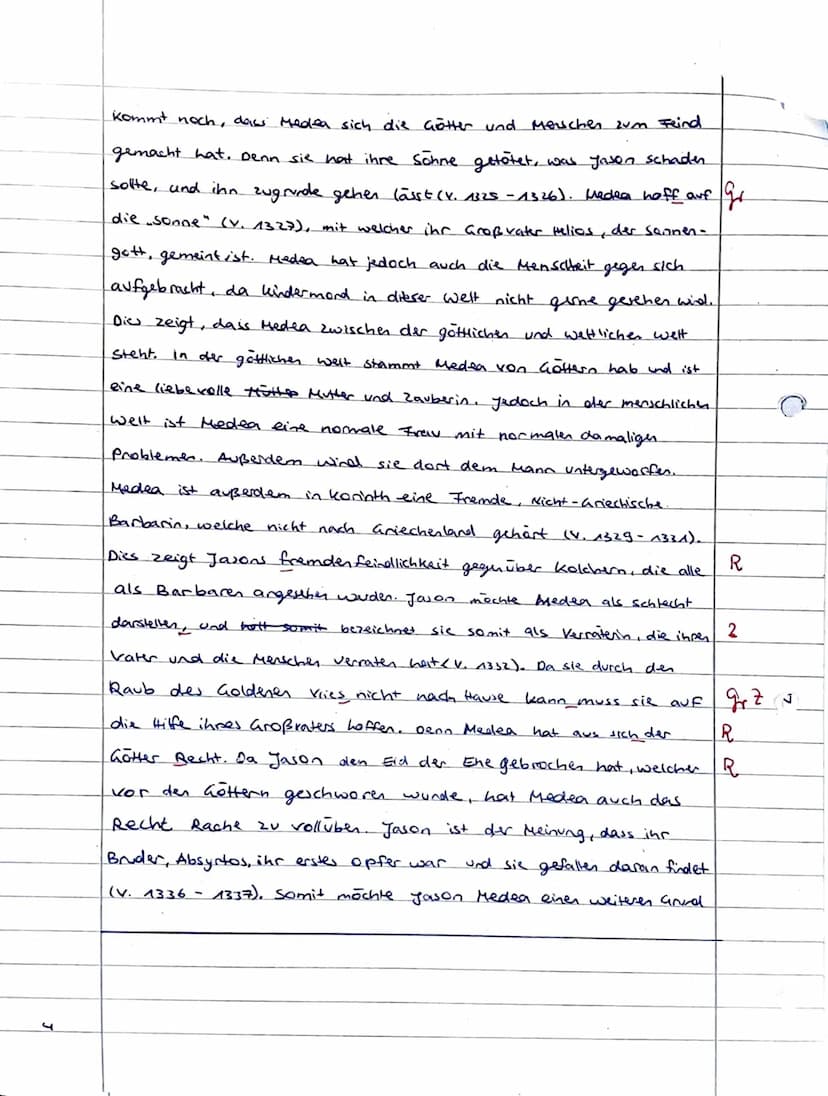 kommt noch, dass Medea sich die Götter und Menschen zum Feind
gemacht hat. Denn sie hat ihre Söhne getötet, was Jason schaden
sollte, und ihn zugrunde gehen lässt (V. 1325 - 1326). Medea hoff auf Gr
die „Sonne" (V. 1327), mit welcher ihr Großvater Helios, der Sonnen-
gott, gemeint ist. Medea hat jedoch auch die Menschheit gegen sich
aufgebracht, da Kindermord in dieser Welt nicht gerne gesehen wird.
Dies zeigt, dass Medea zwischen der göttlichen und weltlichen Welt
steht. In der göttlichen Welt stammt Medea von Göttern hab und ist
eine liebevolle Mutter und Zauberin. Jedoch in der menschlichen
Welt ist Medea eine normale Frau mit normalen damaligen
Problemen. Außerdem wird sie dort dem Mann unterworfen.
Medea ist außerdem in Korinth eine Fremde, Nicht-Griechische
Barbarin, welche nicht nach Griechenland gehört (V. 1329 - 1331).
Dies zeigt Jasons fremdenfeindlichkeit gegenüber Kolchern, die alle R
als Barbaren angesehen wurden. Jason möchte Medea als schlecht
darstellen, und hält somit bezeichnet sie somit als Verräterin, die ihren Z
Vater und die Menschen verraten hat (V. 1332). Da sie durch den
Raub des Goldenen Vlies nicht nach Hause kann muss sie auf Gr Z
die Hilfe ihres Großvaters hoffen. Denn Medea hat aus sich der R
Götter Recht. Da Jason den Eid der Ehe gebrochen hat, welcher R
vor den Göttern geschworen wurde, hat Medea auch das
Recht Rache zu vollüben. Jason ist der Meinung, dass ihr
Bruder, Absyrtos, ihr erstes Opfer war und sie gefallen daran findet
(V. 1336 - 1337). Somit möchte Jason Medea einen weiteren Grund
4